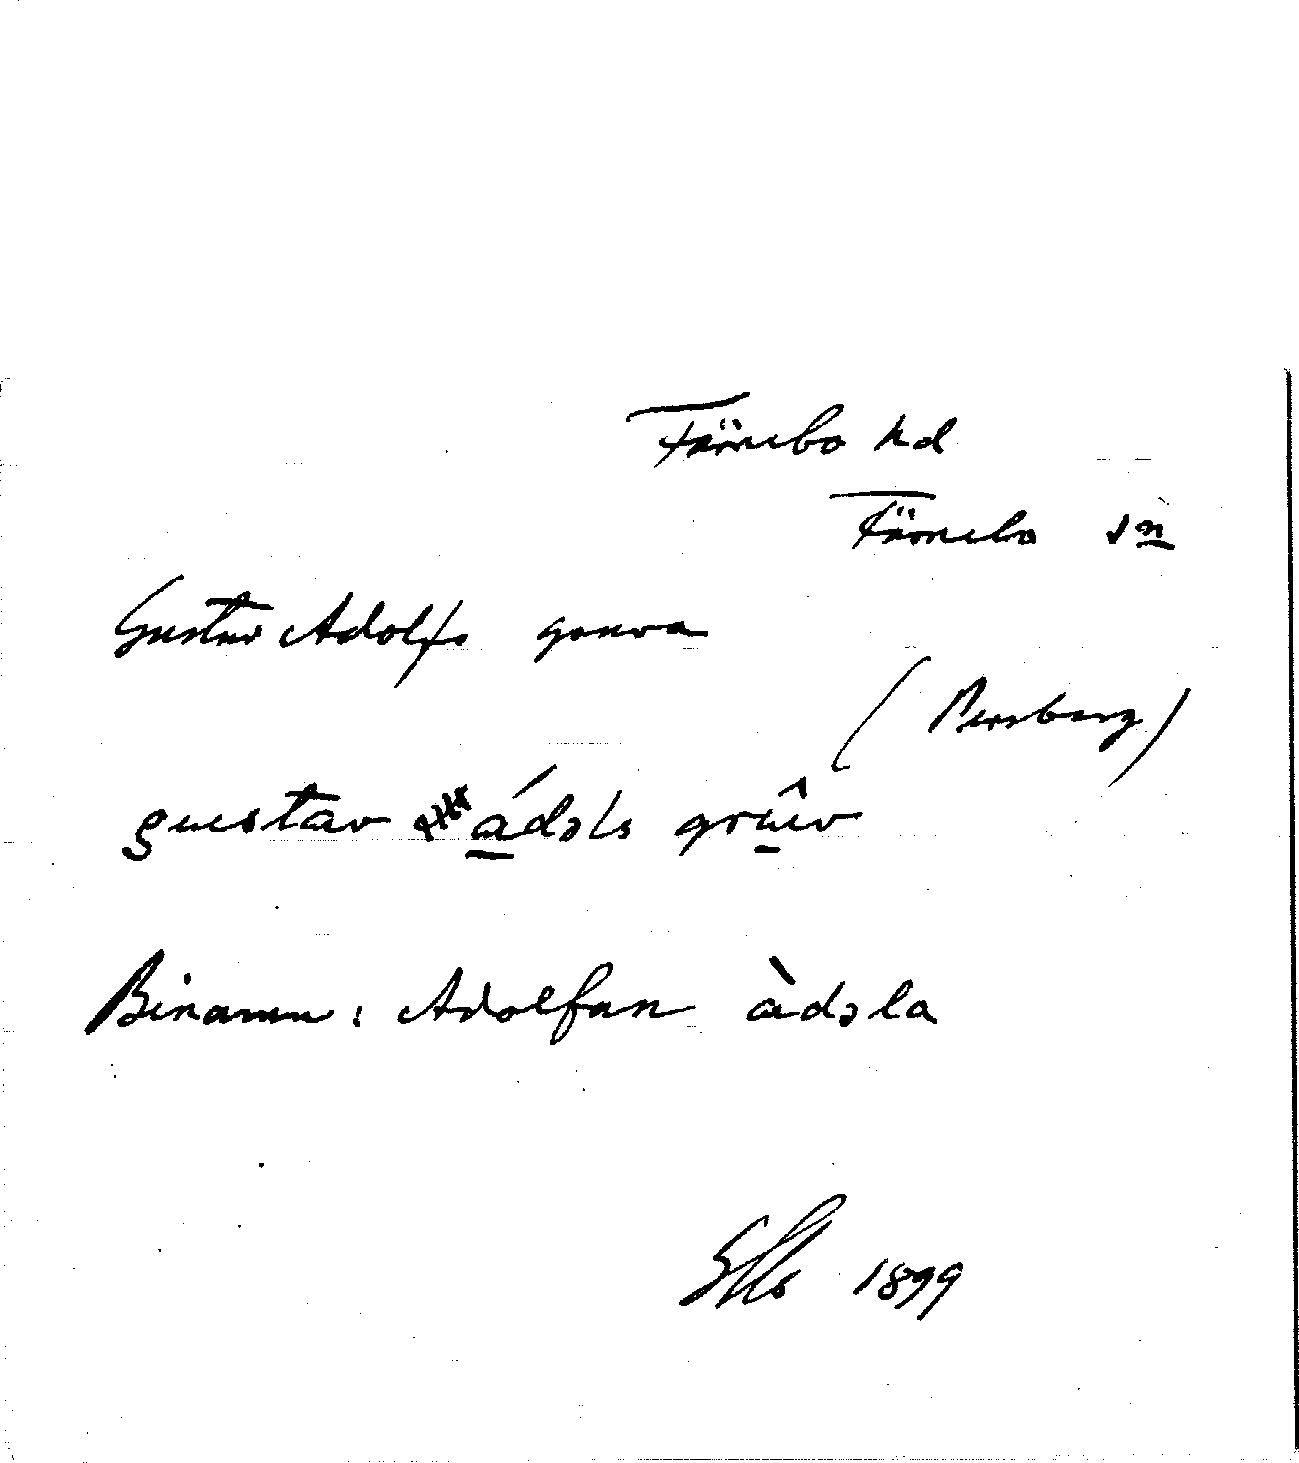 Färnebo hd
Färnebo sn
Gustav Adolfs gruva
(Persberg)
gustav ádɔls grûv
Binamn: Adolfan àdɔla
1899